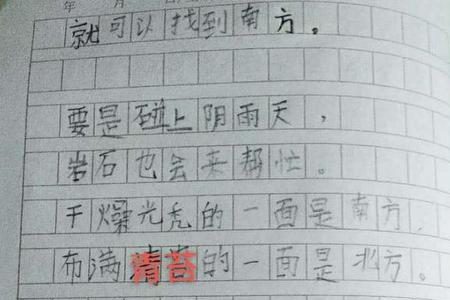 年 月
就可以找到南方。
要是碰上阴雨天，
岩石也会来帮忙。
干燥光秃的一面是南方，
布满青苔的一面是北方。